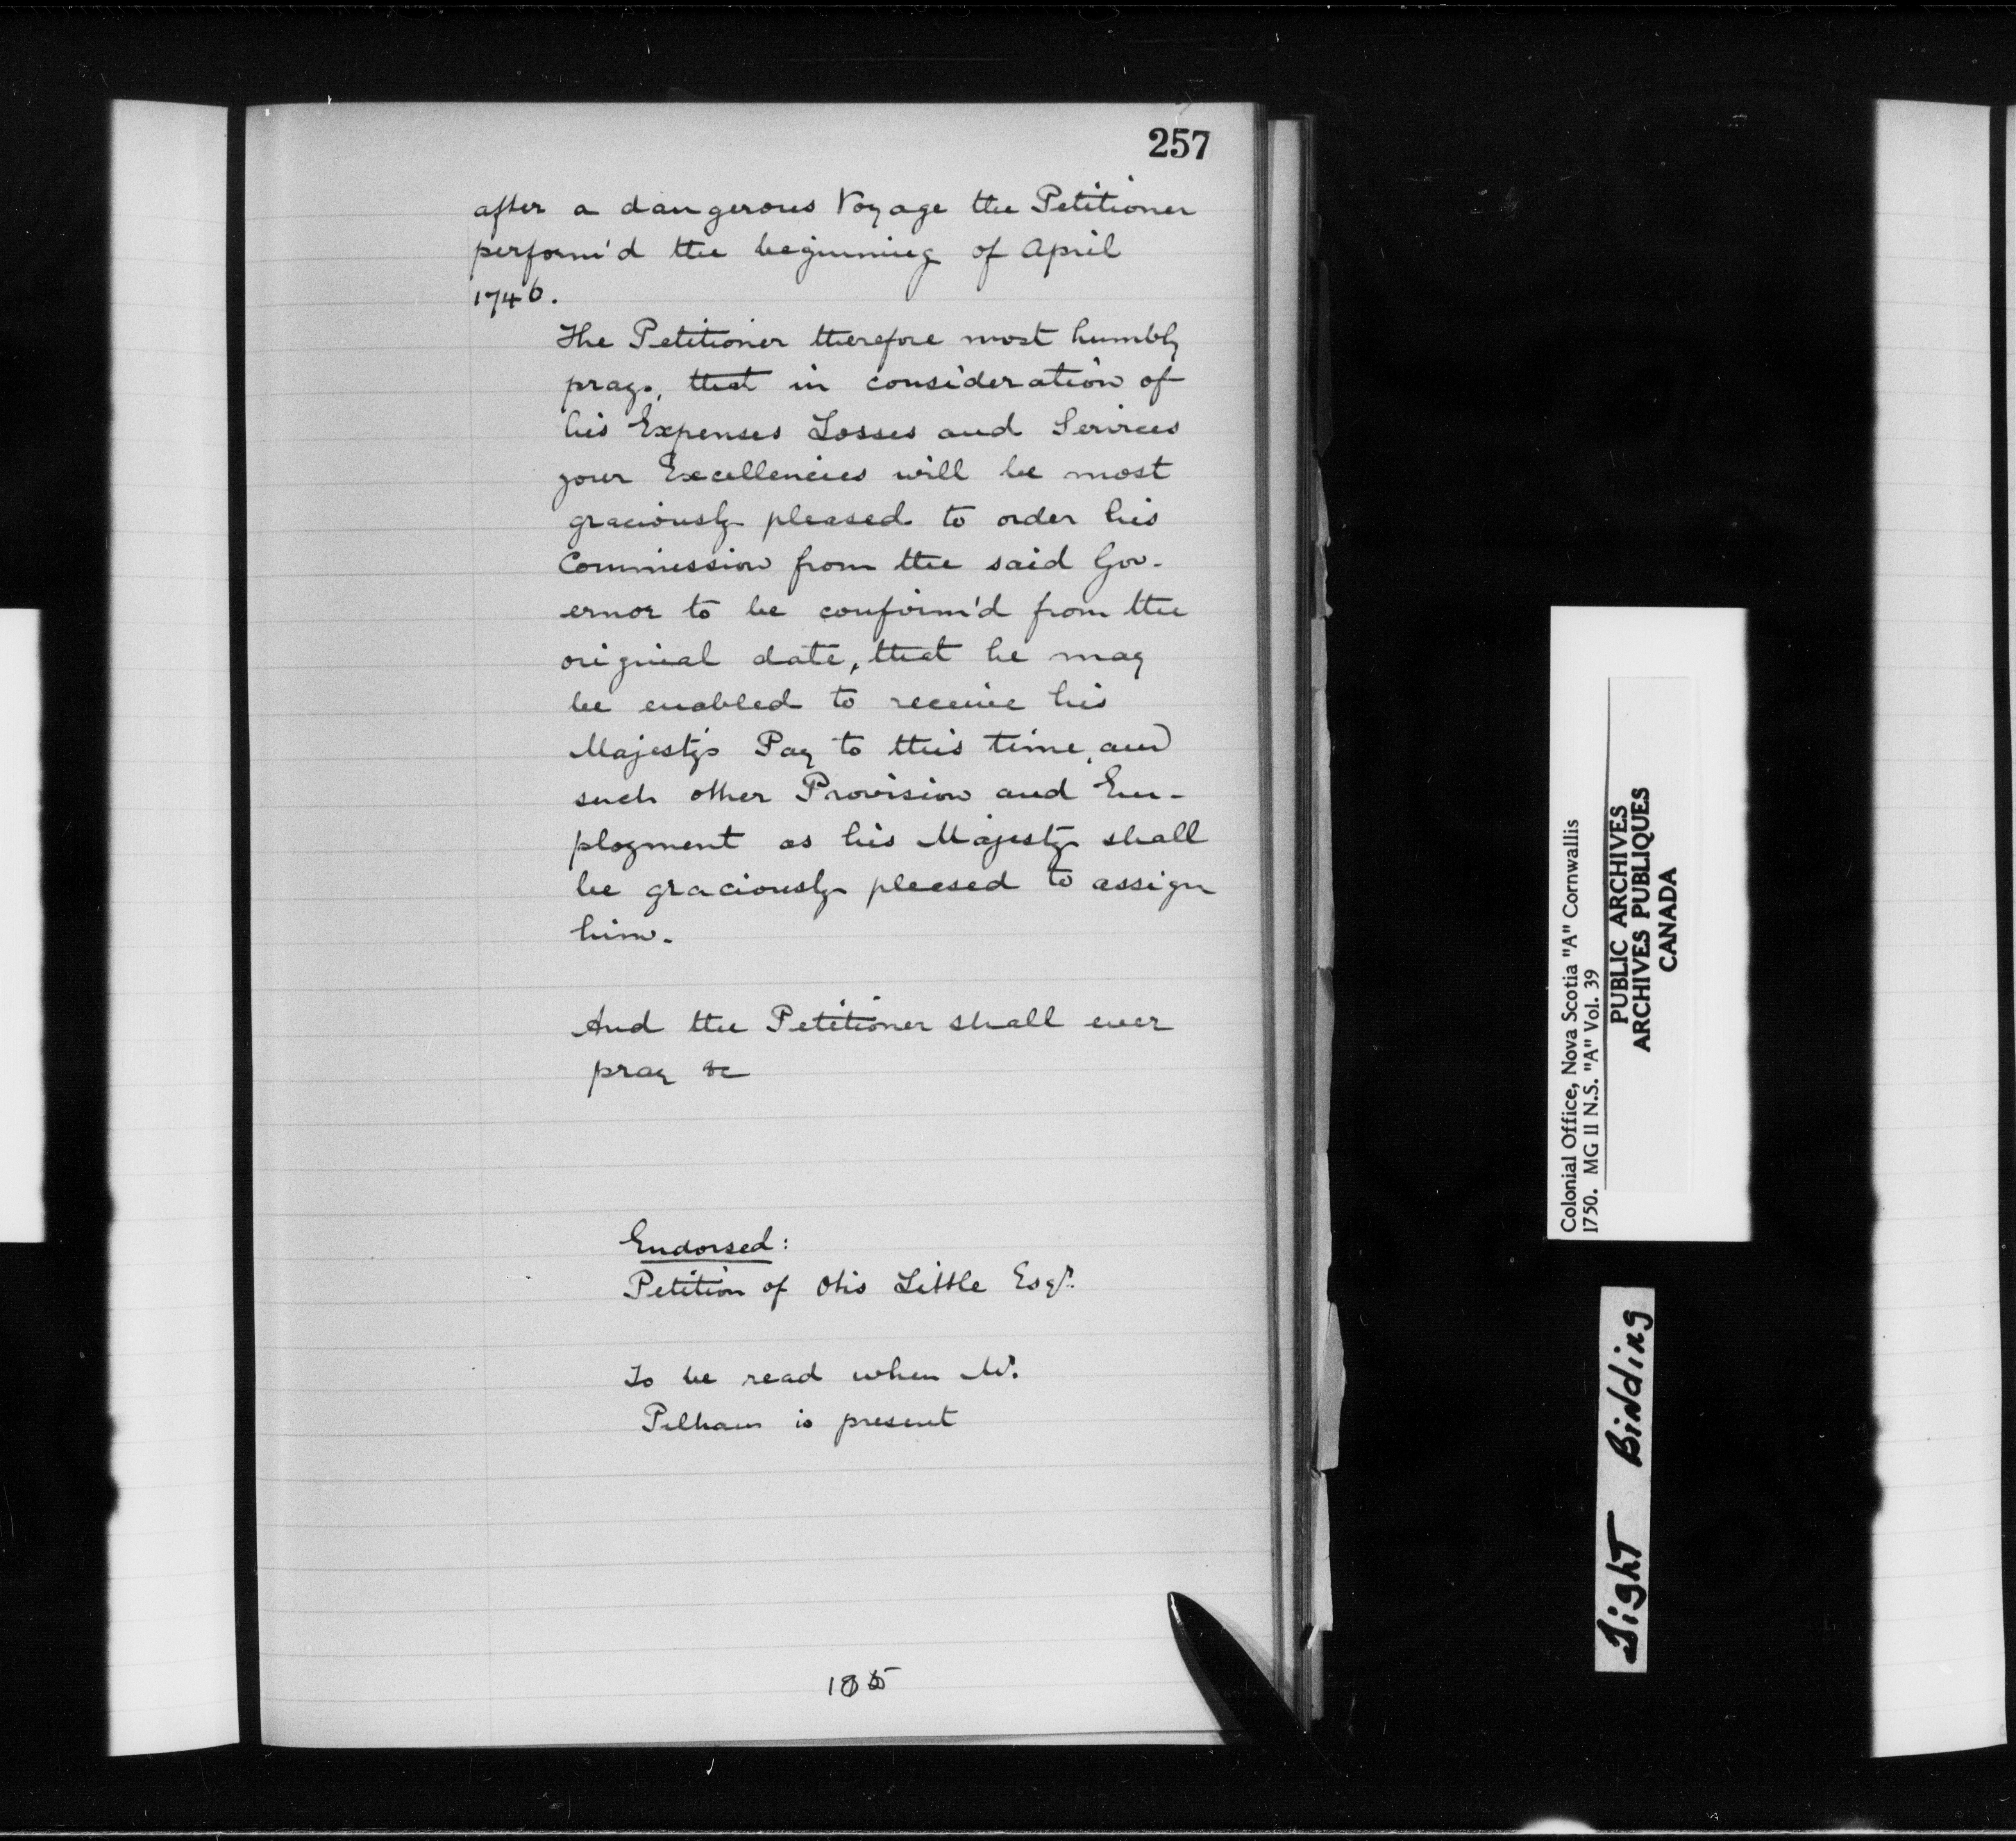 257
after a dangerous Voyage the Petitioner
perform'd the beginning of April
1746.
The Petitioner therefore most humbly
prays, that in consideration of
his Expenses Losses and Services
your Excellencies will be most
graciously pleased to order his
Commission from the said Gov-
ernor to be confirm'd from the
original date, that he may
be enabled to receive his
Majesty's Pay to this time, and
such other Provision and Em-
ployment as his Majesty shall
be graciously pleased to assign
him.
And the Petitioner shall ever
pray &c
Endorsed:
Petition of Otis Little Esqr.
To be read when Mr.
Pelham is present
Colonial Office, Nova Scotia "A" Cornwallis
1750. MG 11 N.S. "A" Vol. 39
PUBLIC ARCHIVES
ARCHIVES PUBLIQUES
CANADA
Tight Binding